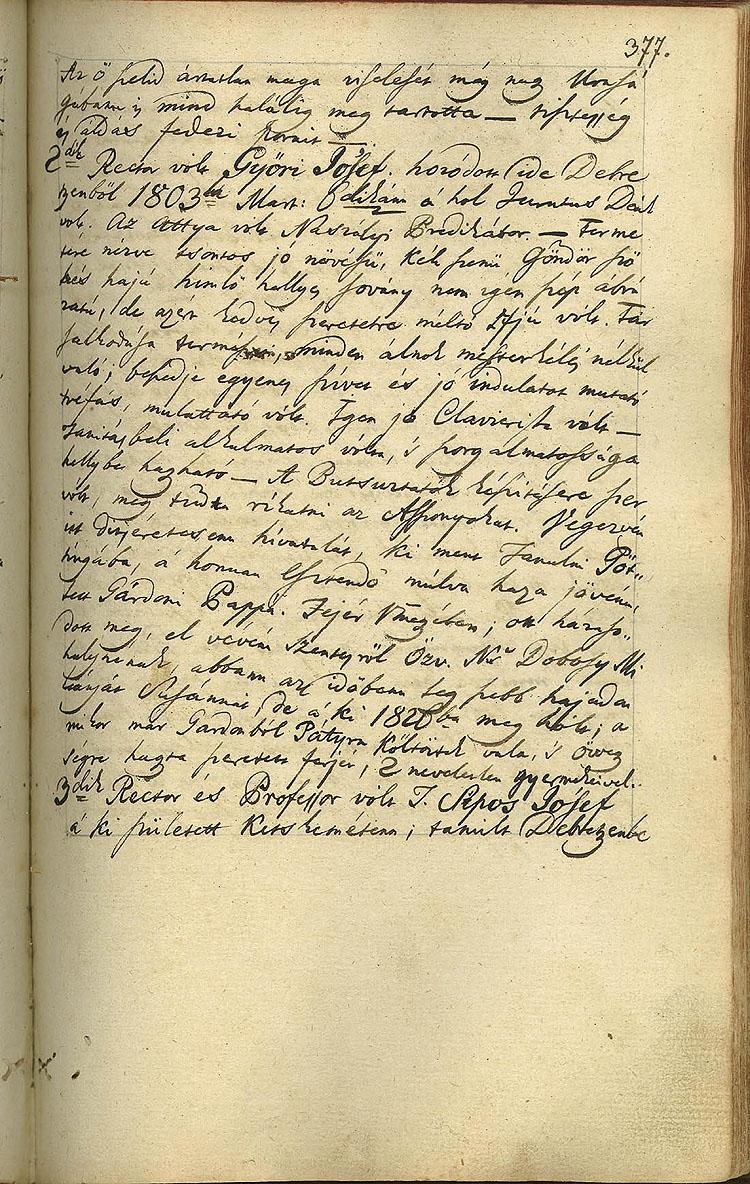 377.
Az ő szelid ártatlan maga viseletét még nagy Uraso
gában is mind haláláig meg tartotta — tisztesség
és áldás fedezi hamvait —.
2dik Rector volt Győri Jósef. hozódott ide Debre
tzenből 1803ba Mart: 6dikán a hol Juratus Deák
volt. Az Attya volt Naszályi Prédikátor. — Terme
tére nézve tsontos jó növésü, kék szemü Göndör sző
kés hajú himlő hellyes sovány nem igen szép ábrá
zatú, de azért kedves szeretetre méltó Ifjú volt. Tár
salkodása termeszeti, minden álnok mesterkélés nélkül
való; beszedje egyenes szívet és jó indulatot mutató
tréfás, mulattató vólt. Igen jó Clavierista volt —
Tanitásbeli alkalmatos vólta, 's szorgalmatossága
hellybe hagyható — A Butsuztatók készitésere ter
vólt, meg tudta ríkatni az Asszonyokat. Végezvén
itt ditséretesenn hivatalát, ki ment Tanulni Göt„
tingába, á honnan Esztendő múlva haza jövénn,
lett Gárdoni Pappa. Fejér Vmegyében; ott házaso„
dott meg, el vevén Szentesről Özv. Ns Dobosy Mi
halynénak, abbann az időbann leg szebb hajadon
leányát Susánnát, de á ki 1820ba meg hólt; a
mikor már Gárdonból Patyra költöztek vala, 's özveg
ségre hagyta szeretett férjét, 2 neveletlen gyermekeivel.
3dik Rector és Professor vólt T. Sipos Jósef
á ki született Ketskemétenn; tanúlt Debretzenbe